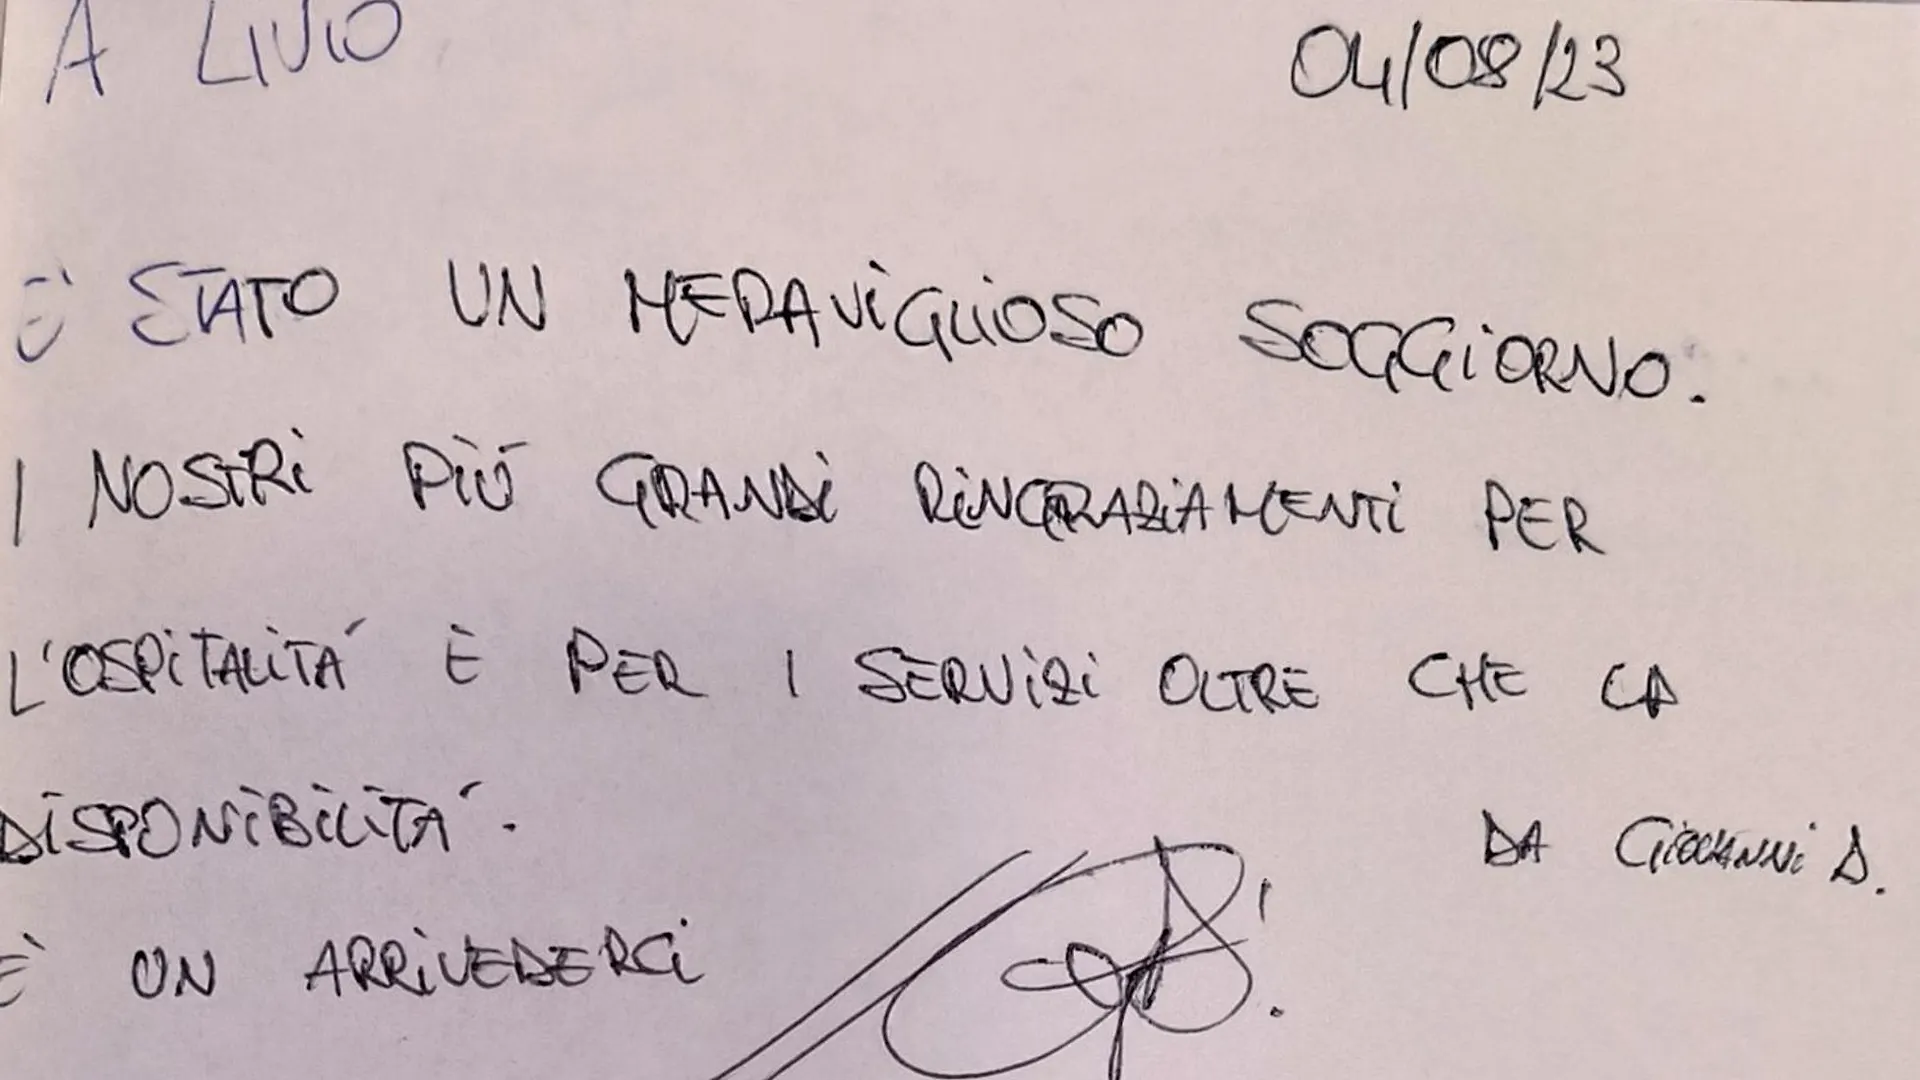 A LIVIO 04/08/23
È STATO UN MERAVIGLIOSO SOGGIORNO.
I NOSTRI PIÙ GRANDI RINGRAZIAMENTI PER
L'OSPITALITÁ È PER I SERVIZI OLTRE CHE LA
DISPONIBILITÁ.
DA GIOVANNI D.
È UN ARRIVEDERCI